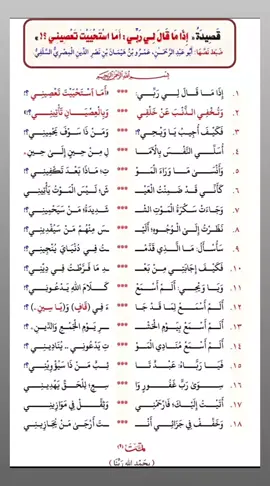 قصيدة: إذا ما قال لي ربي: أما استحييت تعصيني؟!
ضبط نصها: أبو عبد الرحمن، عمرو بن هيمان بن نصر الدين المصري السلفي
بسم الله الرحمن الرحيم
١. إذا ما قال لي ربي: *** «أما استحييت تعصيني؟!
٢. وتخفي الذنب عن خلقي *** وبالعصيان تأتيني»؟!
٣. فكيف أجيب يا ويحي؟! *** ومن ذا سوف يحميني؟!
٤. أسلي النفس بالآما *** ل من حين إلى حين.
٥. وأنسى ما وراء المو *** ت؛ ماذا بعد تكفيني؟!
٦. كأني قد ضمنت العيـ *** ـش؛ ليس الموت يأتيني.
٧. وجاءت سكرة الموت الشـ *** ـشديدة؛ من سيحميني؟!
٨. نظرت إلى الوجوه؛ أليـ *** ـس منهم من سيفديني؟!
٩. سأسأل: ما الذي قدمـ *** ـت في دنياي ينجيني؟!
١٠. فكيف إجابتي من بعـ *** ـد ما فرطت في ديني؟!
١١. ويا ويحي؛ ألم أسمع *** كلام الله يدعوني؟!
١٢. ألم أسمع لما قد جا *** ء في (قاف) و(يا سين)؟!
١٣. ألم أسمع بيوم الحشـ *** ـر يوم الجمع والدين؟!
١٤. ألم أسمع منادي المو *** ت يدعوني.. يناديني؟!
١٥. فيا رباه؛ عبد تا *** ئب من ذا سيؤويني؟!
١٦. سوى رب غفور وا *** سع؛ للحق يهديني.
١٧. أتيت إليك؛ فارحمني *** وثقل في موازيني.
١٨. وخفف في جزائي أنـ *** ـت أرجى من يجازيني.
تمت
(بحمد الله ربنا)